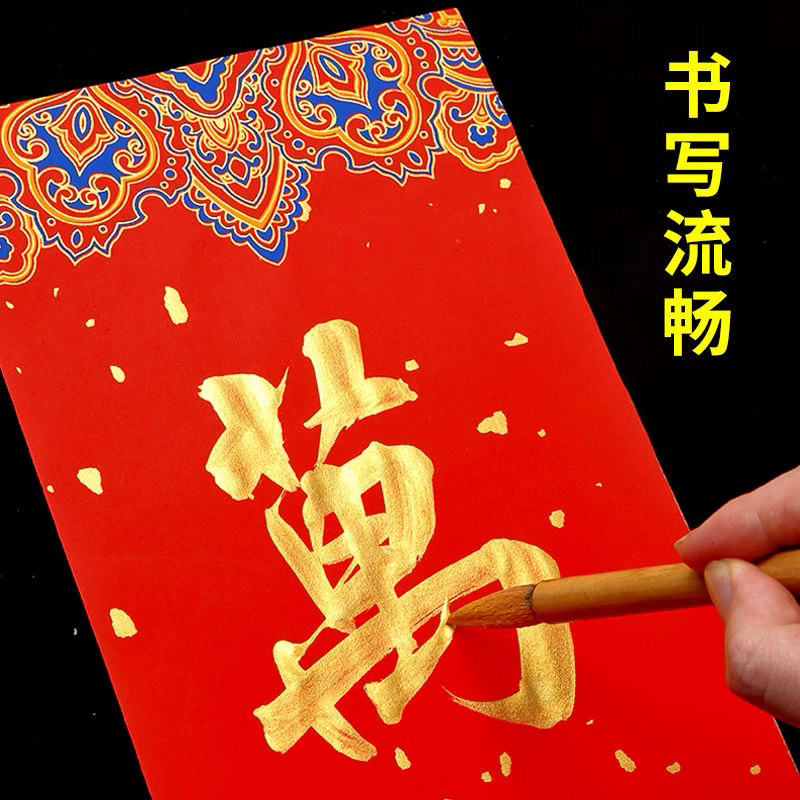 书写流畅
萬